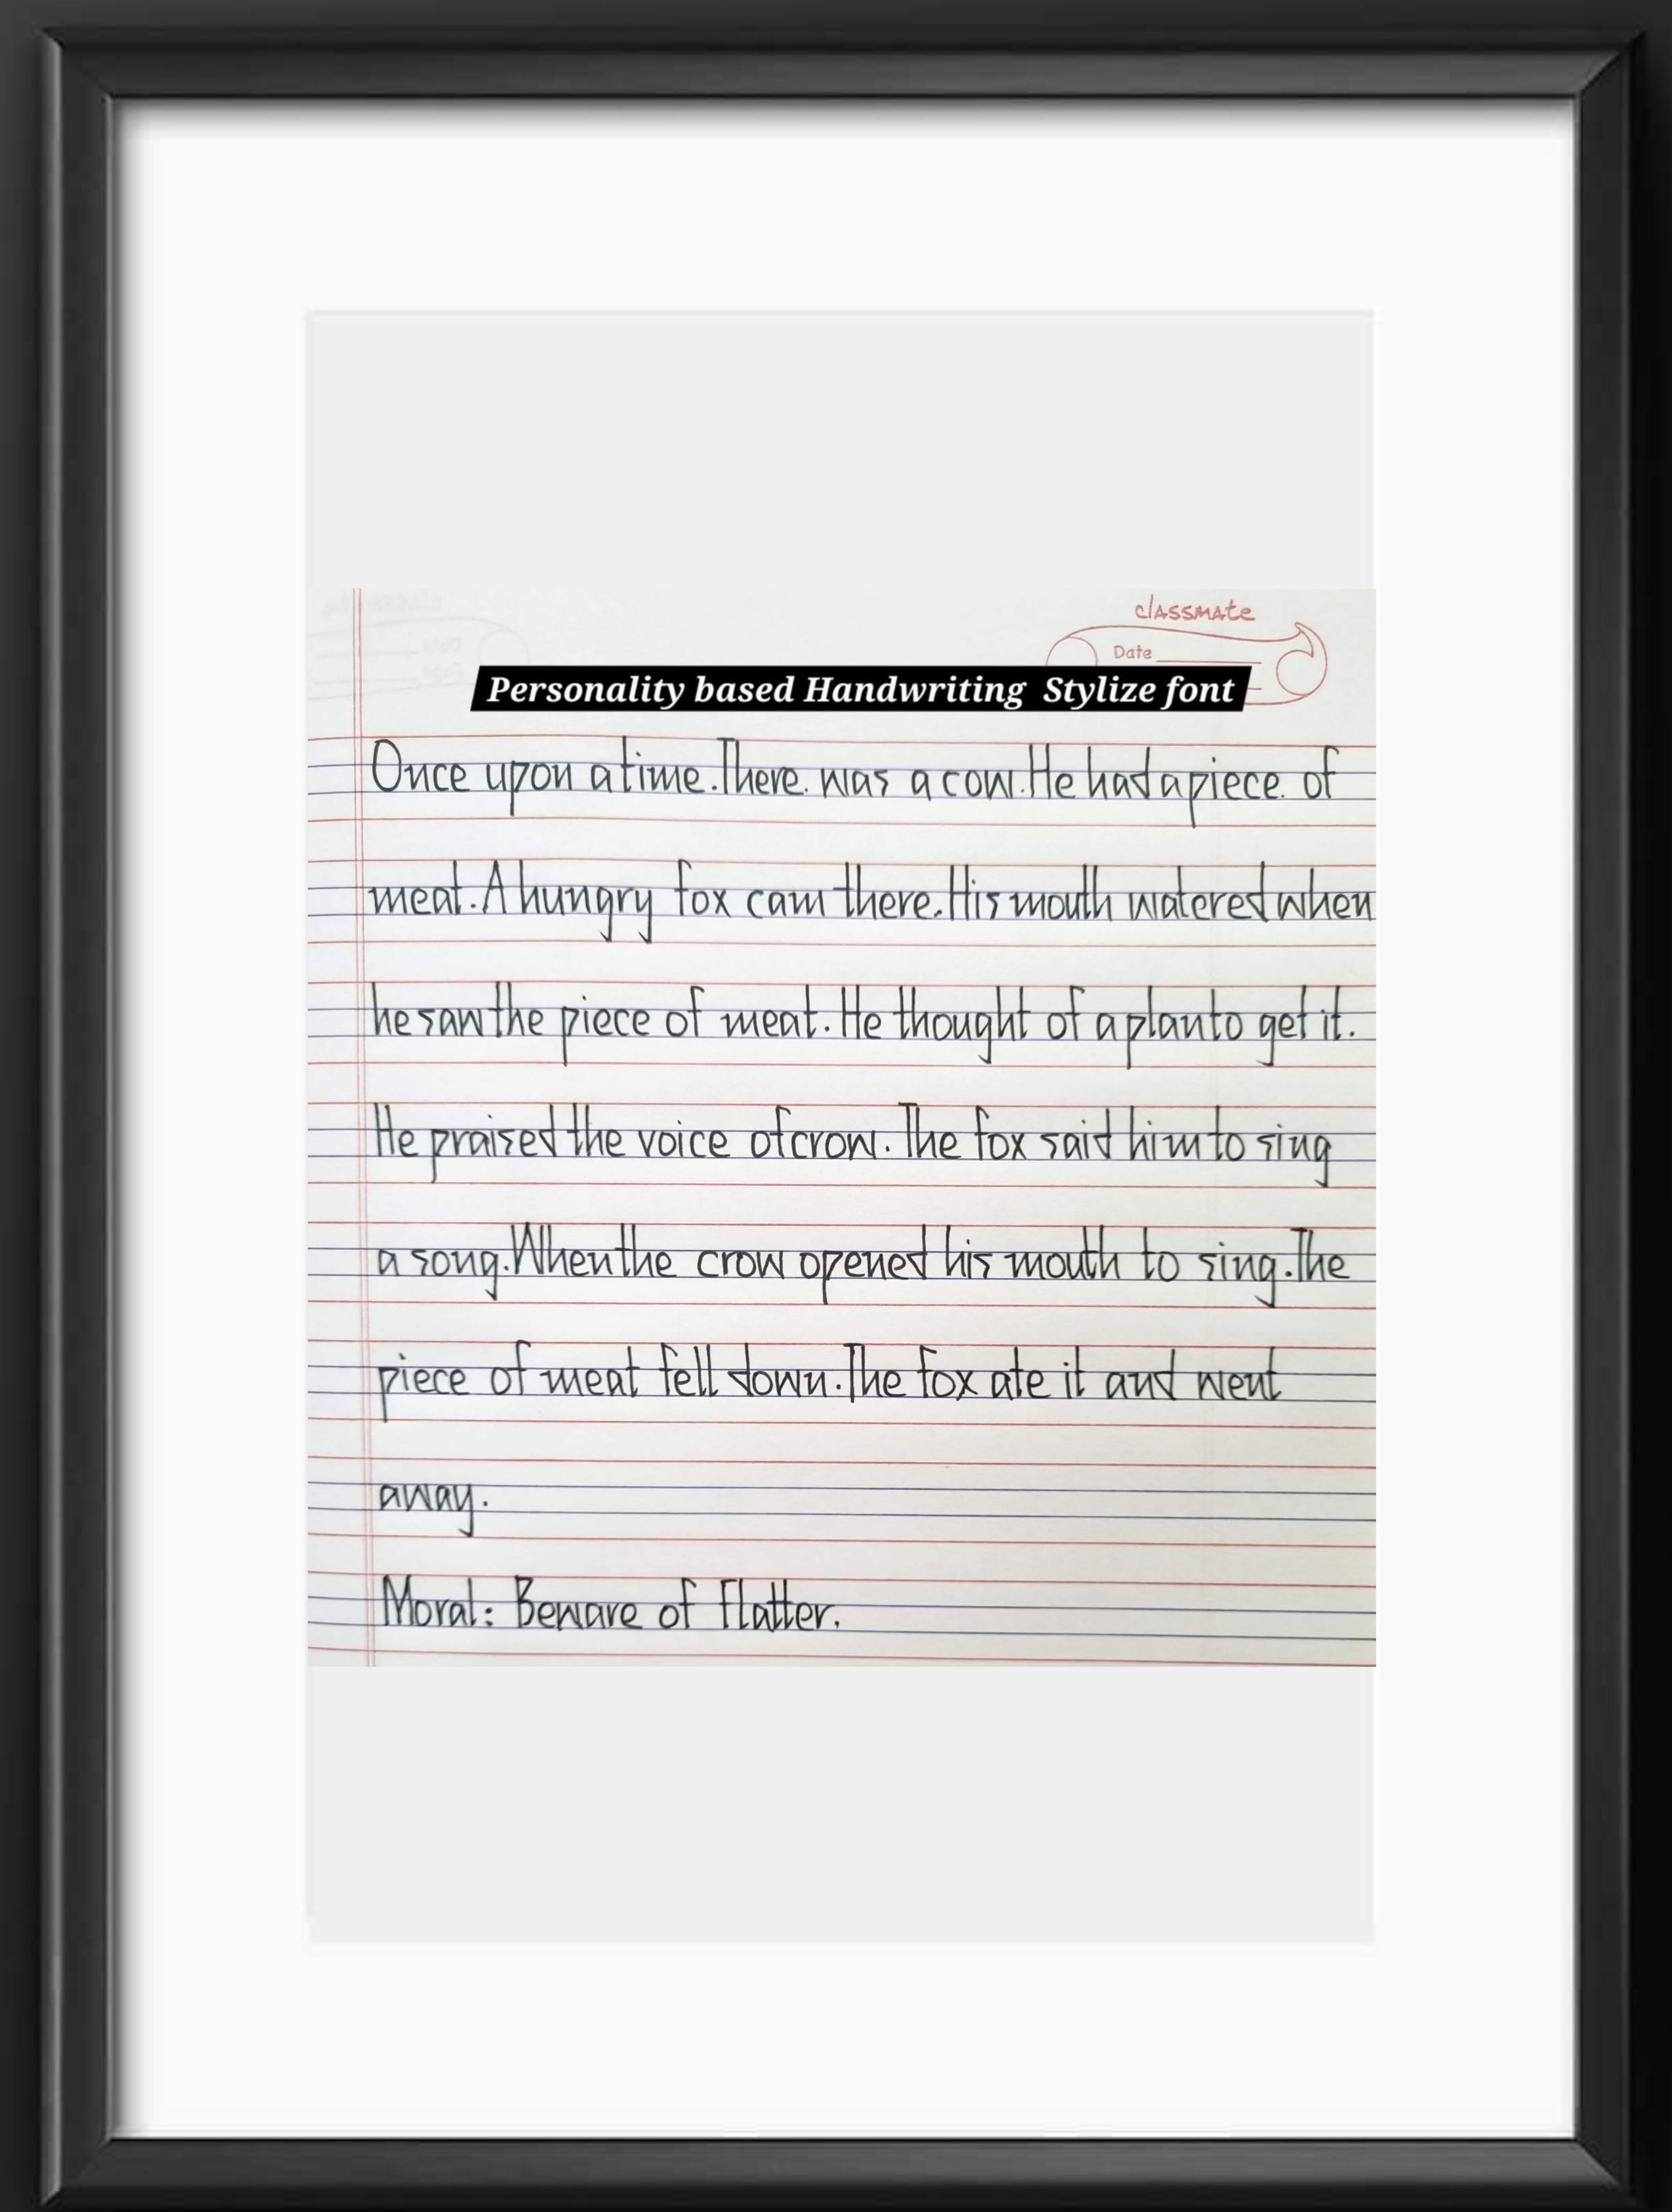 classmate
Date
Personality based Handwriting Stylize font
Once upon a time. There. was a cow. He had a piece. of
meat. A hungry fox cam there. His mouth watered when
he saw the piece of meat. He thought of a plan to get it.
He praised the voice of crow. The fox said him to sing
a song. When the crow opened his mouth to sing. The
piece of meat fell down. The fox ate it and went
away.
Moral: Beware of Flatter.